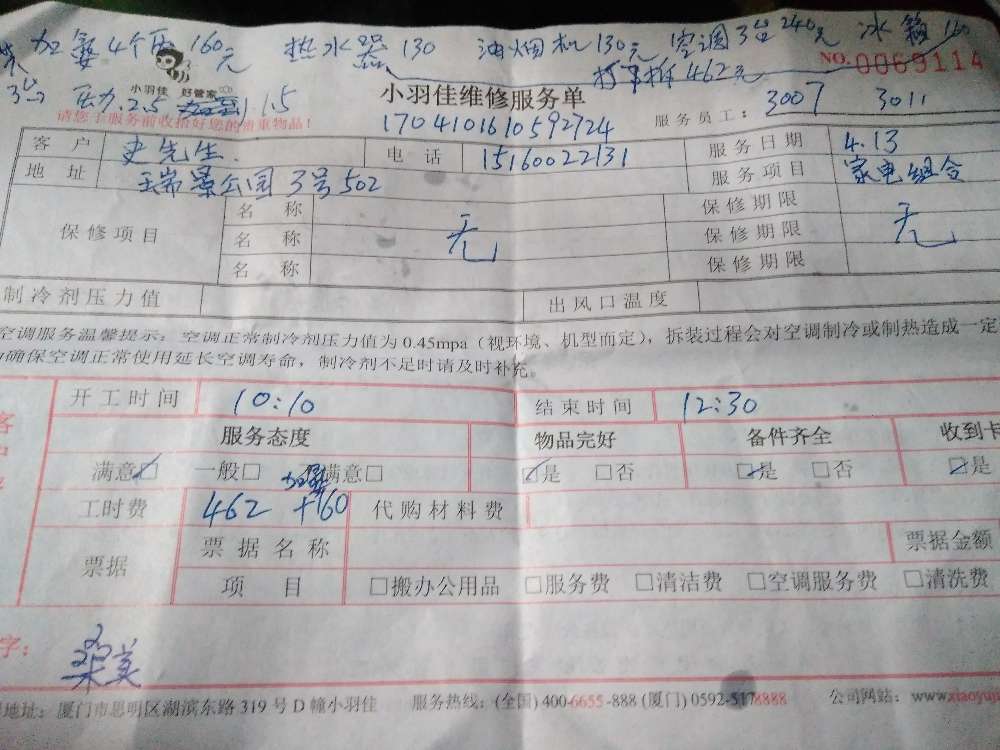 加氨4个压 160元 热水器 130 油烟机 130元 空调3台 240元 冰箱 110
打折 462元
NO. 0069114
小羽佳 好管家
压力.2.5 1.5
小羽佳维修服务单
请您于服务前收拾好您的贵重物品!
1704101610592724
服务员工: 3007 3011
客户 史先生. 电话 15160022131 服务日期 4.13
地址 瑞景公园3号502 服务项目 家电组合
保修项目 名称 无 保修期限 无
名称 保修期限
名称 保修期限
制冷剂压力值 出风口温度
空调服务温馨提示:空调正常制冷剂压力值为0.45mpa(视环境、机型而定),拆装过程会对空调制冷或制热造成一定
确保空调正常使用延长空调寿命,制冷剂不足时请及时补充。
开工时间 10:10 结束时间 12:30
服务态度 物品完好 备件齐全 收到卡
满意☑ 一般□ 不满意□ ☑是 □否 ☑是 □否 ☑是
工时费 462 +160 代购材料费
票据 票据名称 票据金额
项目 □搬办公用品 □服务费 □清洁费 □空调服务费 □清洗费
字:
地址: 厦门市思明区湖滨东路319号D幢小羽佳 服务热线:(全国) 400-6655-888 (厦门) 0592-5178888 公司网站: www.xiaoyuj